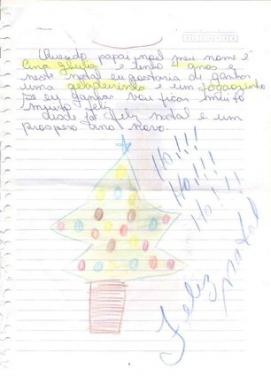 Querido papai noel meu nome é
Ana Giulia e tenho 7 anos e
neste natal eu gostaria de ganhar
uma geladeirinha e um fogaozinho
se eu ganhar vou ficar muito
muito feliz
desde já feliz natal e um
prospero ano novo.
Ho!!!
Ho!!!
Ho!!!
Feliz natal